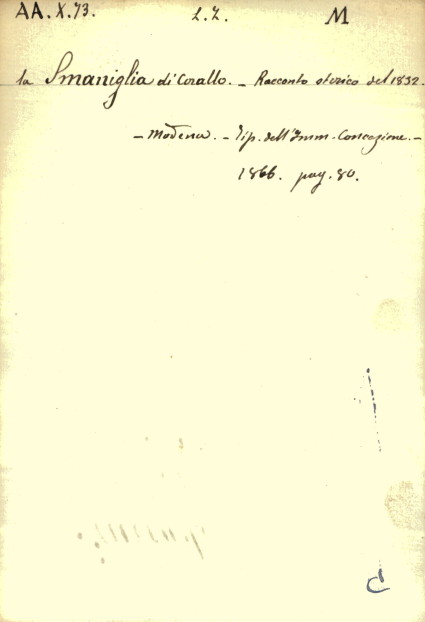 AA.X.73. L.Z. M
la Smaniglia di Corallo. — Racconto storico del 1832.
— Modena. — Tip. dell'Imm. Concezione. —
1866. pag. 80.